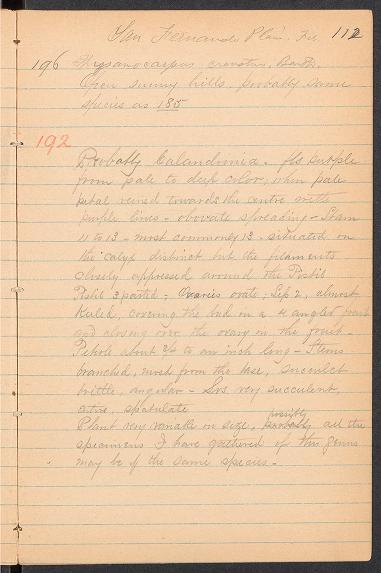 San Fernando Plain. Feb 112
196 Thysanocarpus crenatus, Benth.
Open sunny hills, probably same
species as 185
192
Probably Calandrinia. fls purple
from pale to deep color, when pale
petal veined towards the centre with
purple lines - obovate spreading - Stam
11 to 13 - most commonly 13 - situated on
the calyx distinct but the filaments
closely appressed around the Pistil
Pistil 3 parted; Ovaries ovate; Sep 2, almost
Keeled, covering the bud in a 4 angled
and closing over the ovary in the fruit -
Petiole about 3/4 to an inch long - Stems
branched, most from the base, succulent
brittle, angular - Lvs. very succulent,
entire, spatulate
Plant very variable in size, possibly probably all the
specimens I have gathered of this genus
may be of the same species -